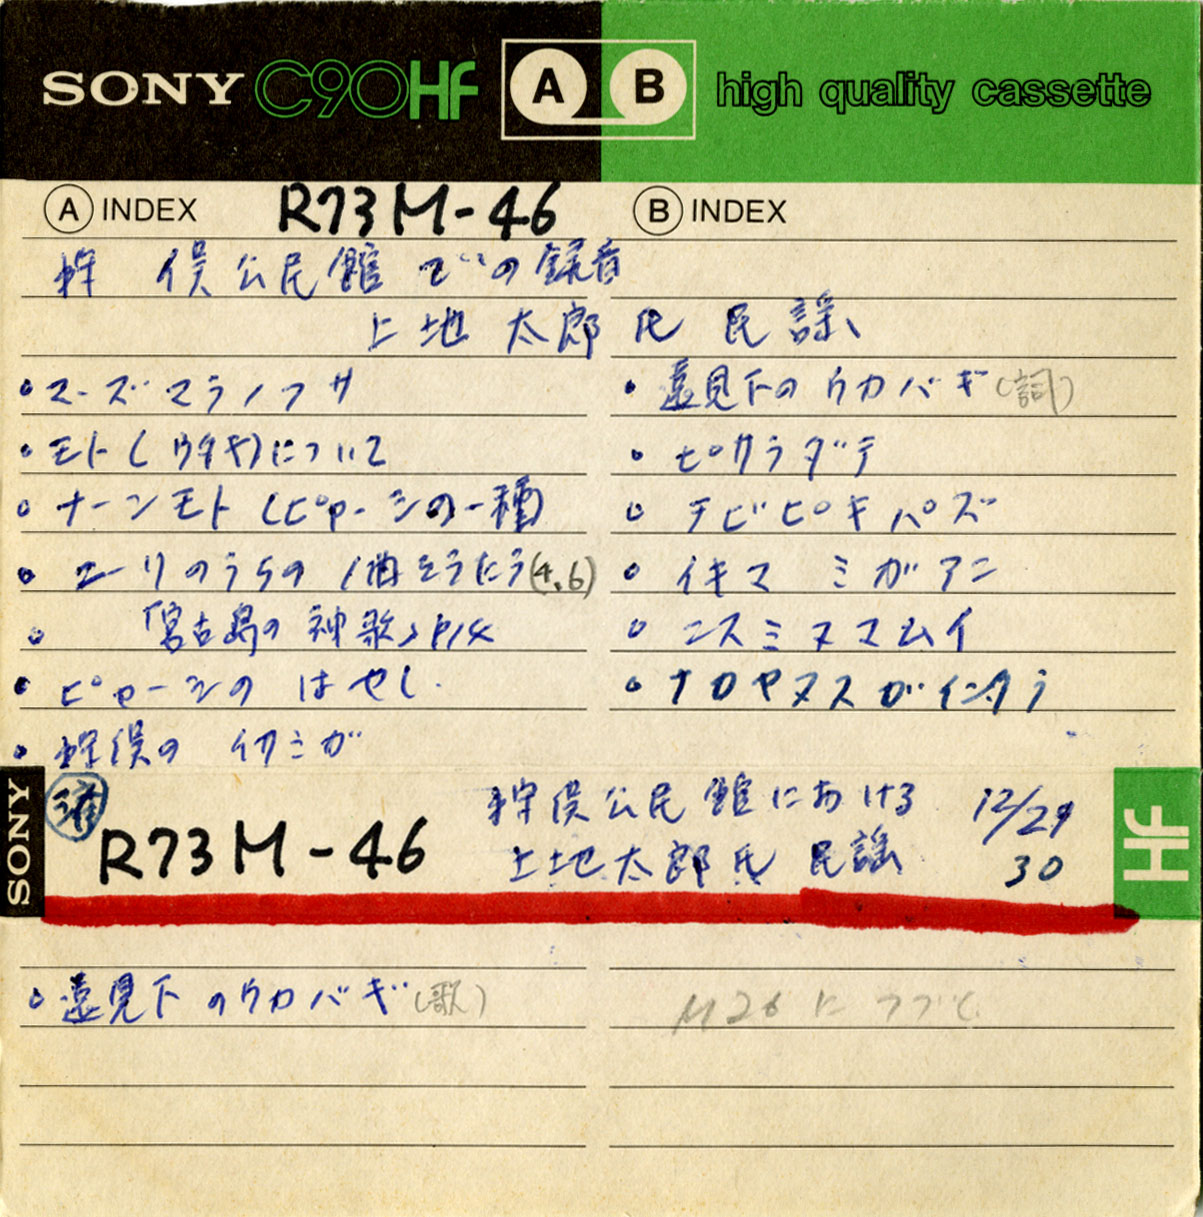 SONY C90HF A B high quality cassette
A INDEX R73M-46 B INDEX
狩俣公民館での録音
上地太郎氏 民謡
・マーズマラノフサ
・モト(ウタキ)について
・ナーンモト(ピャーシの一種)
・ユーリのうちの1曲をうたう(4.6)
・「宮古島の神歌」P14
・ピャーシの はやし.
・狩俣の イサミガ
・遠見下のウカバギ(詞)
・ピサラダテ
・テビピキパズ
・イキマ ミガアニ
・ニスミヌマムイ
・ナカヤヌスガインタラ
SONY
済
R73M-46
狩俣公民館における
上地太郎氏 民謡
12/29
30
HF
・遠見下のウカバギ(歌)
M26に つづく